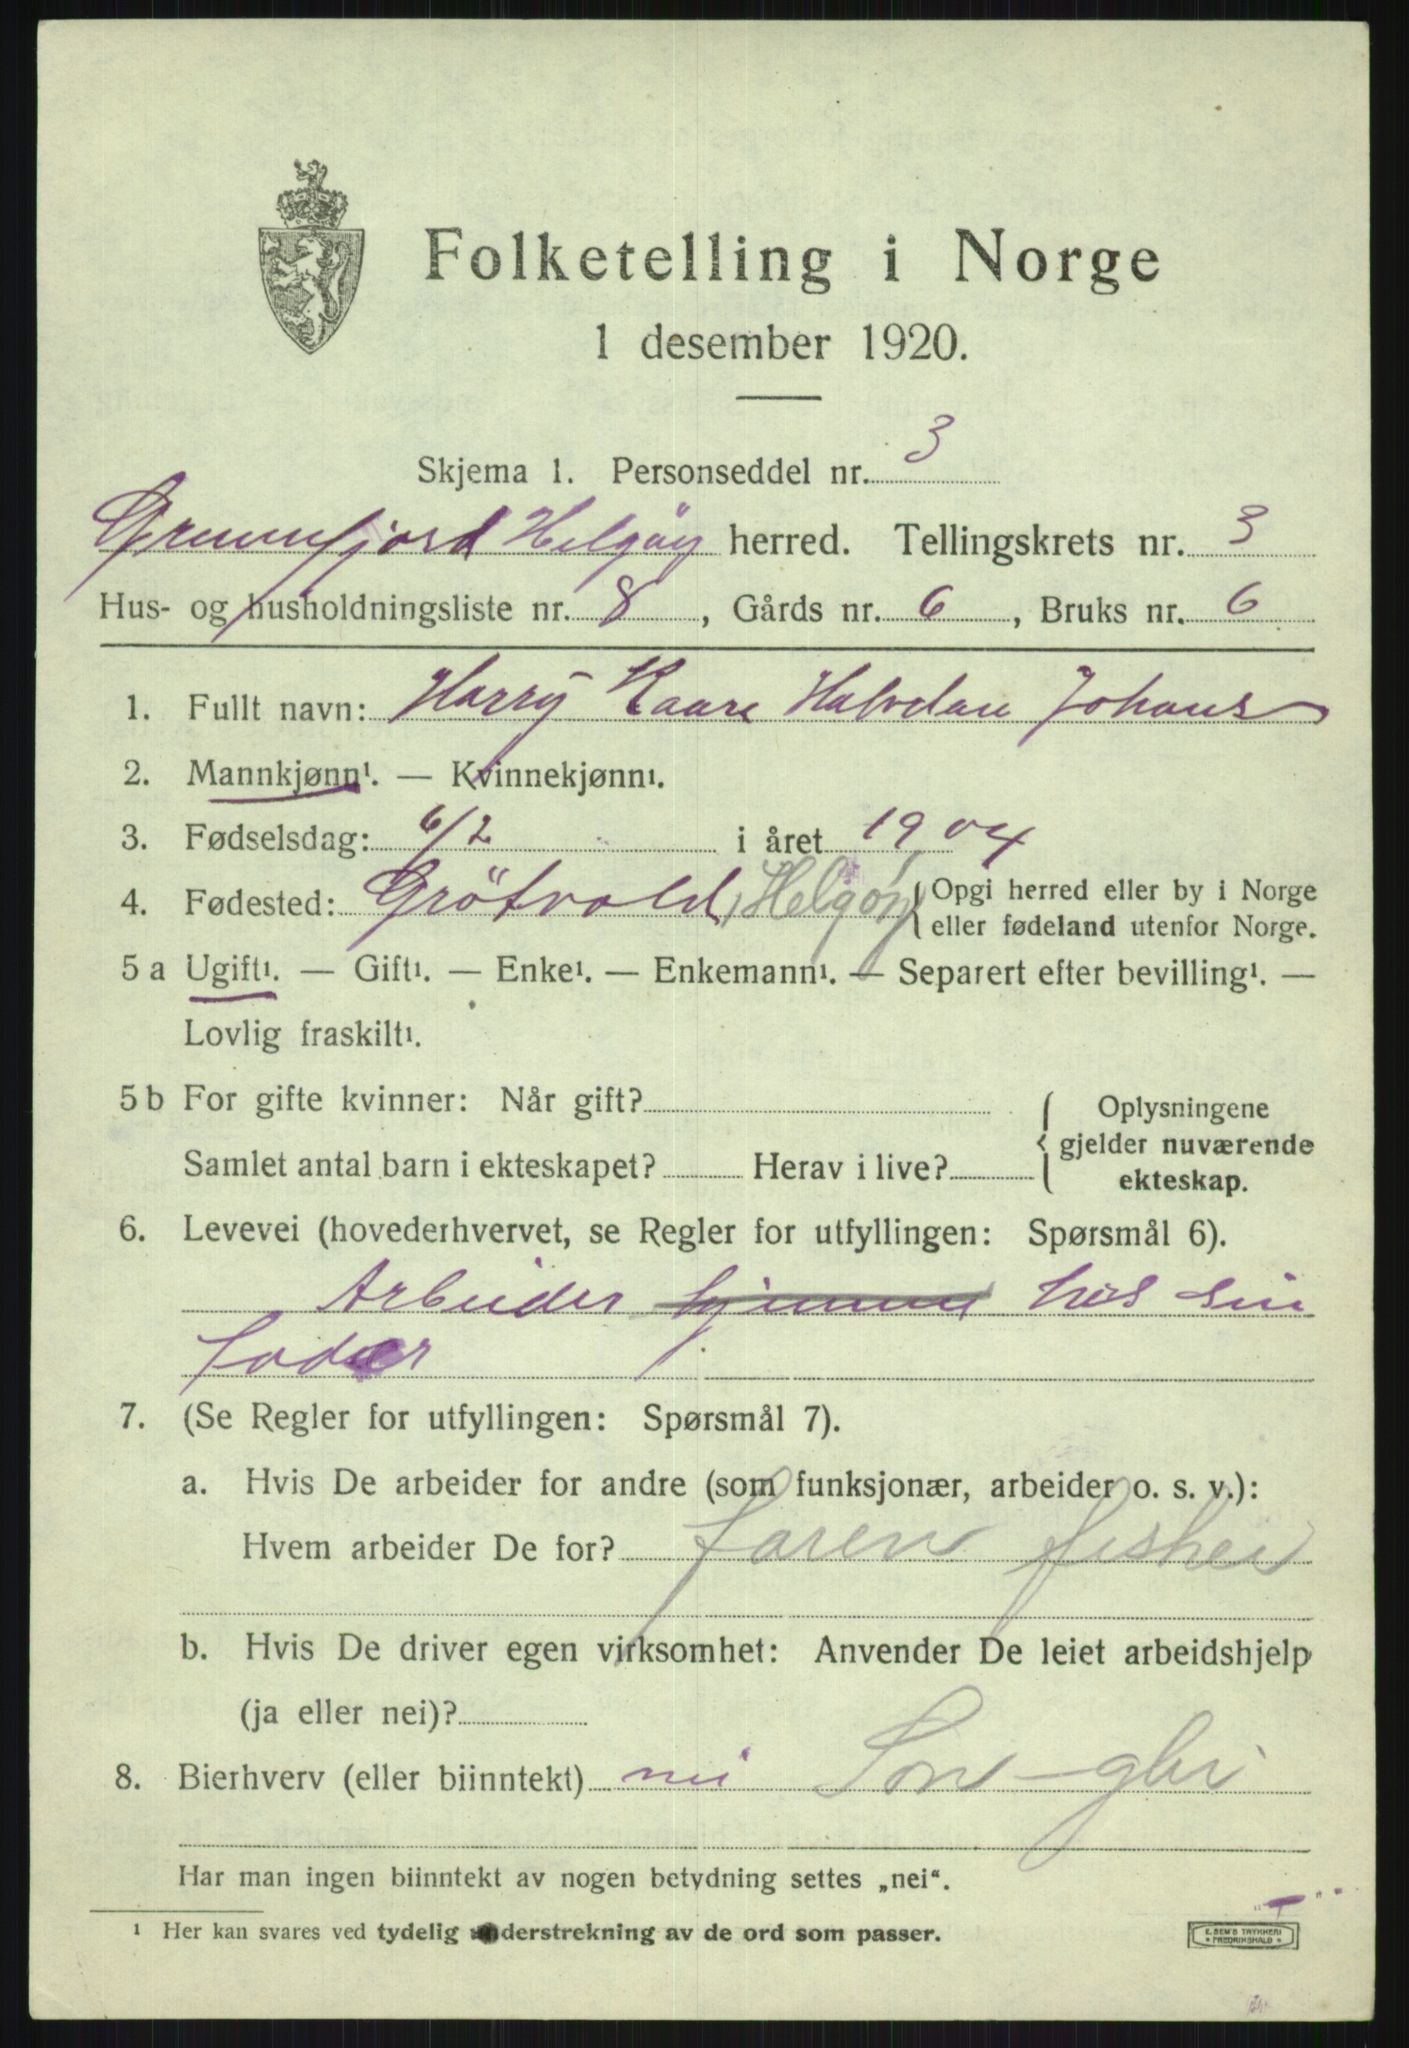 Folketelling i Norge
1 desember 1920.
Skjema 1. Personseddel nr. 3
Grunnfjord Helgöy herred. Tellingskrets nr. 3
Hus- og husholdningsliste nr. 8, Gårds nr. 6, Bruks nr. 6
1. Fullt navn: Harry Kaare Halvdan Johans
2. Mannkjønn¹. — Kvinnekjønn¹.
3. Fødselsdag: 6/2 i året 1904
4. Fødested: Grötvold, Helgøy { Opgi herred eller by i Norge
eller fødeland utenfor Norge.
5 a Ugift¹. — Gift¹. — Enke¹. — Enkemann¹. — Separert efter bevilling¹. —
Lovlig fraskilt¹.
5 b For gifte kvinner: Når gift?
Samlet antal barn i ekteskapet? Herav i live?
{ Oplysningene
gjelder nuværende
ekteskap.
6. Levevei (hovederhvervet, se Regler for utfyllingen: Spørsmål 6).
Arbeider hjemme hos sin
fader
7. (Se Regler for utfyllingen: Spørsmål 7).
a. Hvis De arbeider for andre (som funksjonær, arbeider o. s. v.):
Hvem arbeider De for? faren fisker
b. Hvis De driver egen virksomhet: Anvender De leiet arbeidshjelp
(ja eller nei)?
8. Bierhverv (eller biinntekt) nei
Har man ingen biinntekt av nogen betydning settes „nei“.
¹ Her kan svares ved tydelig understrekning av de ord som passer.
E. SEM'S TRYKKERI
FREDRIKSHALD